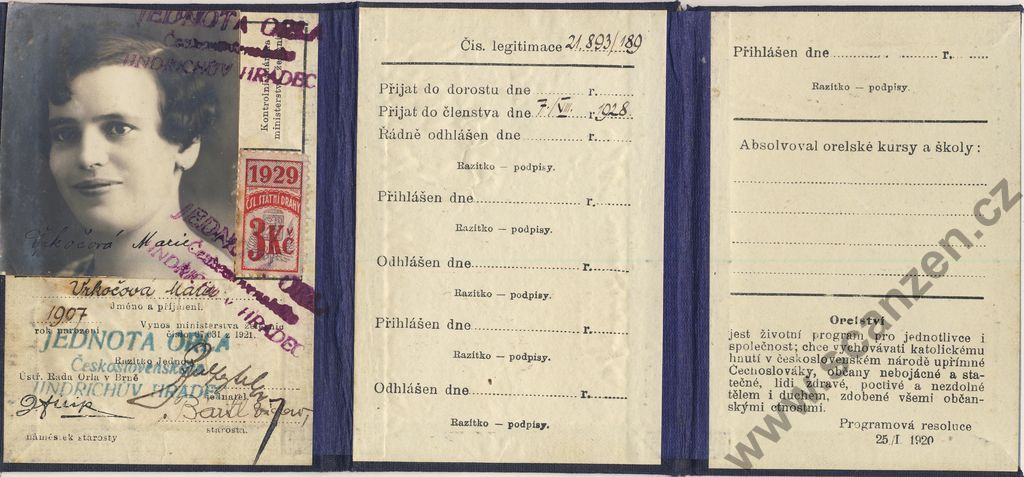 JEDNOTA ORLA
Československého
JINDŘICHŮV HRADEC
Kontrolní známka
ministerstva želez
1929
ČSL. STÁTNÍ DRÁHY
3Kč
JEDNOTA ORLA
Československého
JINDŘICHŮV HRADEC
Vrkočová Marie
Vrkočova Marie
Jméno a příjmení.
1907
rok narození
Výnos ministerstva železnic
z 1921.
JEDNOTA ORLA
Československého
JINDŘICHŮV HRADEC
Razítko Jednoty
Ústř. Rada Orla v Brně
jednatel.
náměstek starosty
starosta.
Čís. legitimace 21.893/189
Přijat do dorostu dne r.
Přijat do členstva dne 7./VIII. r. 1928
Řádně odhlášen dne r.
Razítko — podpisy.
Přihlášen dne r.
Razítko — podpisy.
Odhlášen dne r.
Razítko — podpisy.
Přihlášen dne r.
Razítko — podpisy.
Odhlášen dne r.
Razítko — podpisy.
Přihlášen dne r.
Razítko — podpisy.
Absolvoval orelské kursy a školy:
Orelství
jest životní program pro jednotlivce i
společnost; chce vychovávati katolickému
hnutí v československém národě upřímné
Čechoslováky, občany nebojácné a sta-
tečné, lidi zdravé, poctivé a nezdolné
tělem i duchem, zdobené všemi občan-
skými ctnostmi.
Programová resoluce
25/I. 1920
www.scanzen.cz